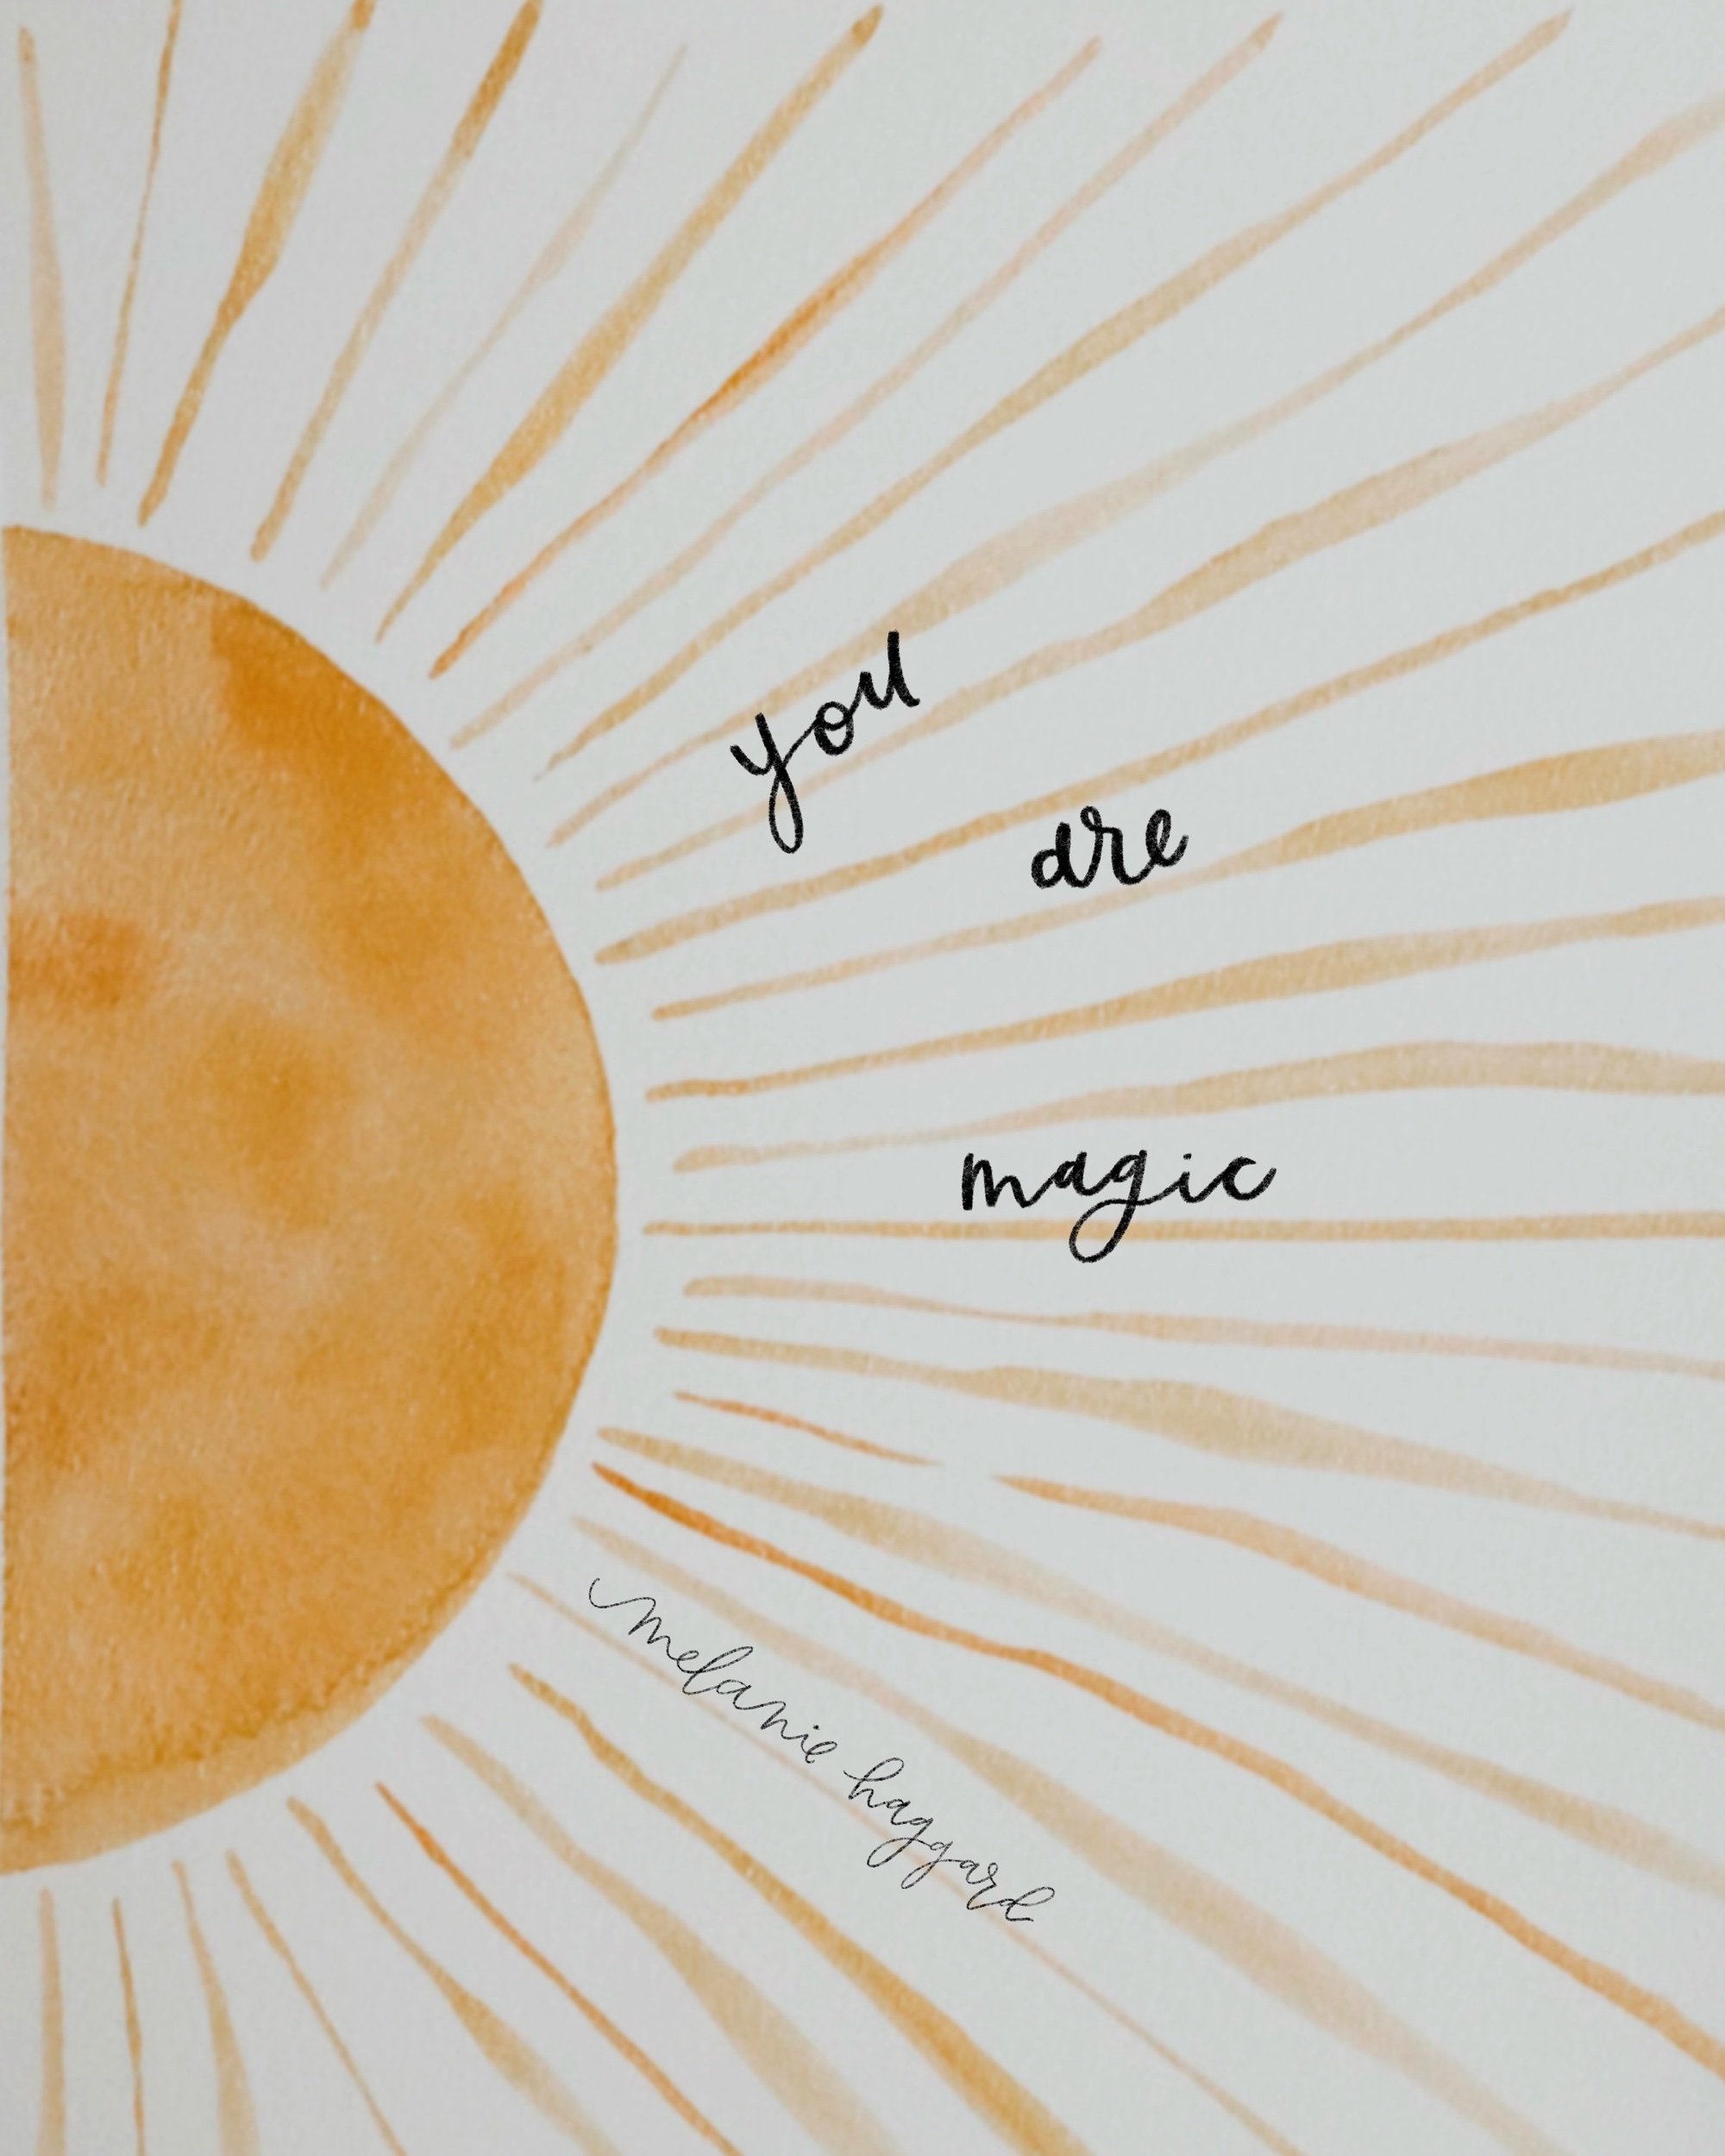 you
are
magic
melanie haggard